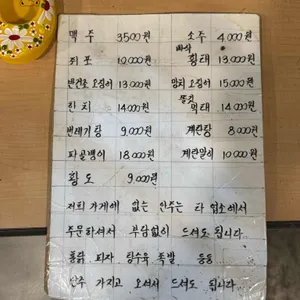 맥주 3500원 소주 4,000원
쥐포 10,000원 바삭 황태 13,000원
반건조 오징어 13,000원 망치 오징어 15,000원
한치 14,000원 쫄깃 먹태 14,000원
번데기탕 9,000원 계란탕 8,000원
파골뱅이 18,000원 계란말이 10,000원
황도 9,000원
저희 가게에 없는 안주는 타 업소에서
주문하셔서 부담없이 드셔도 됩니다
통닭 피자 탕수육 족발 등등
안주 가지고 오셔서 드셔도 됩니다